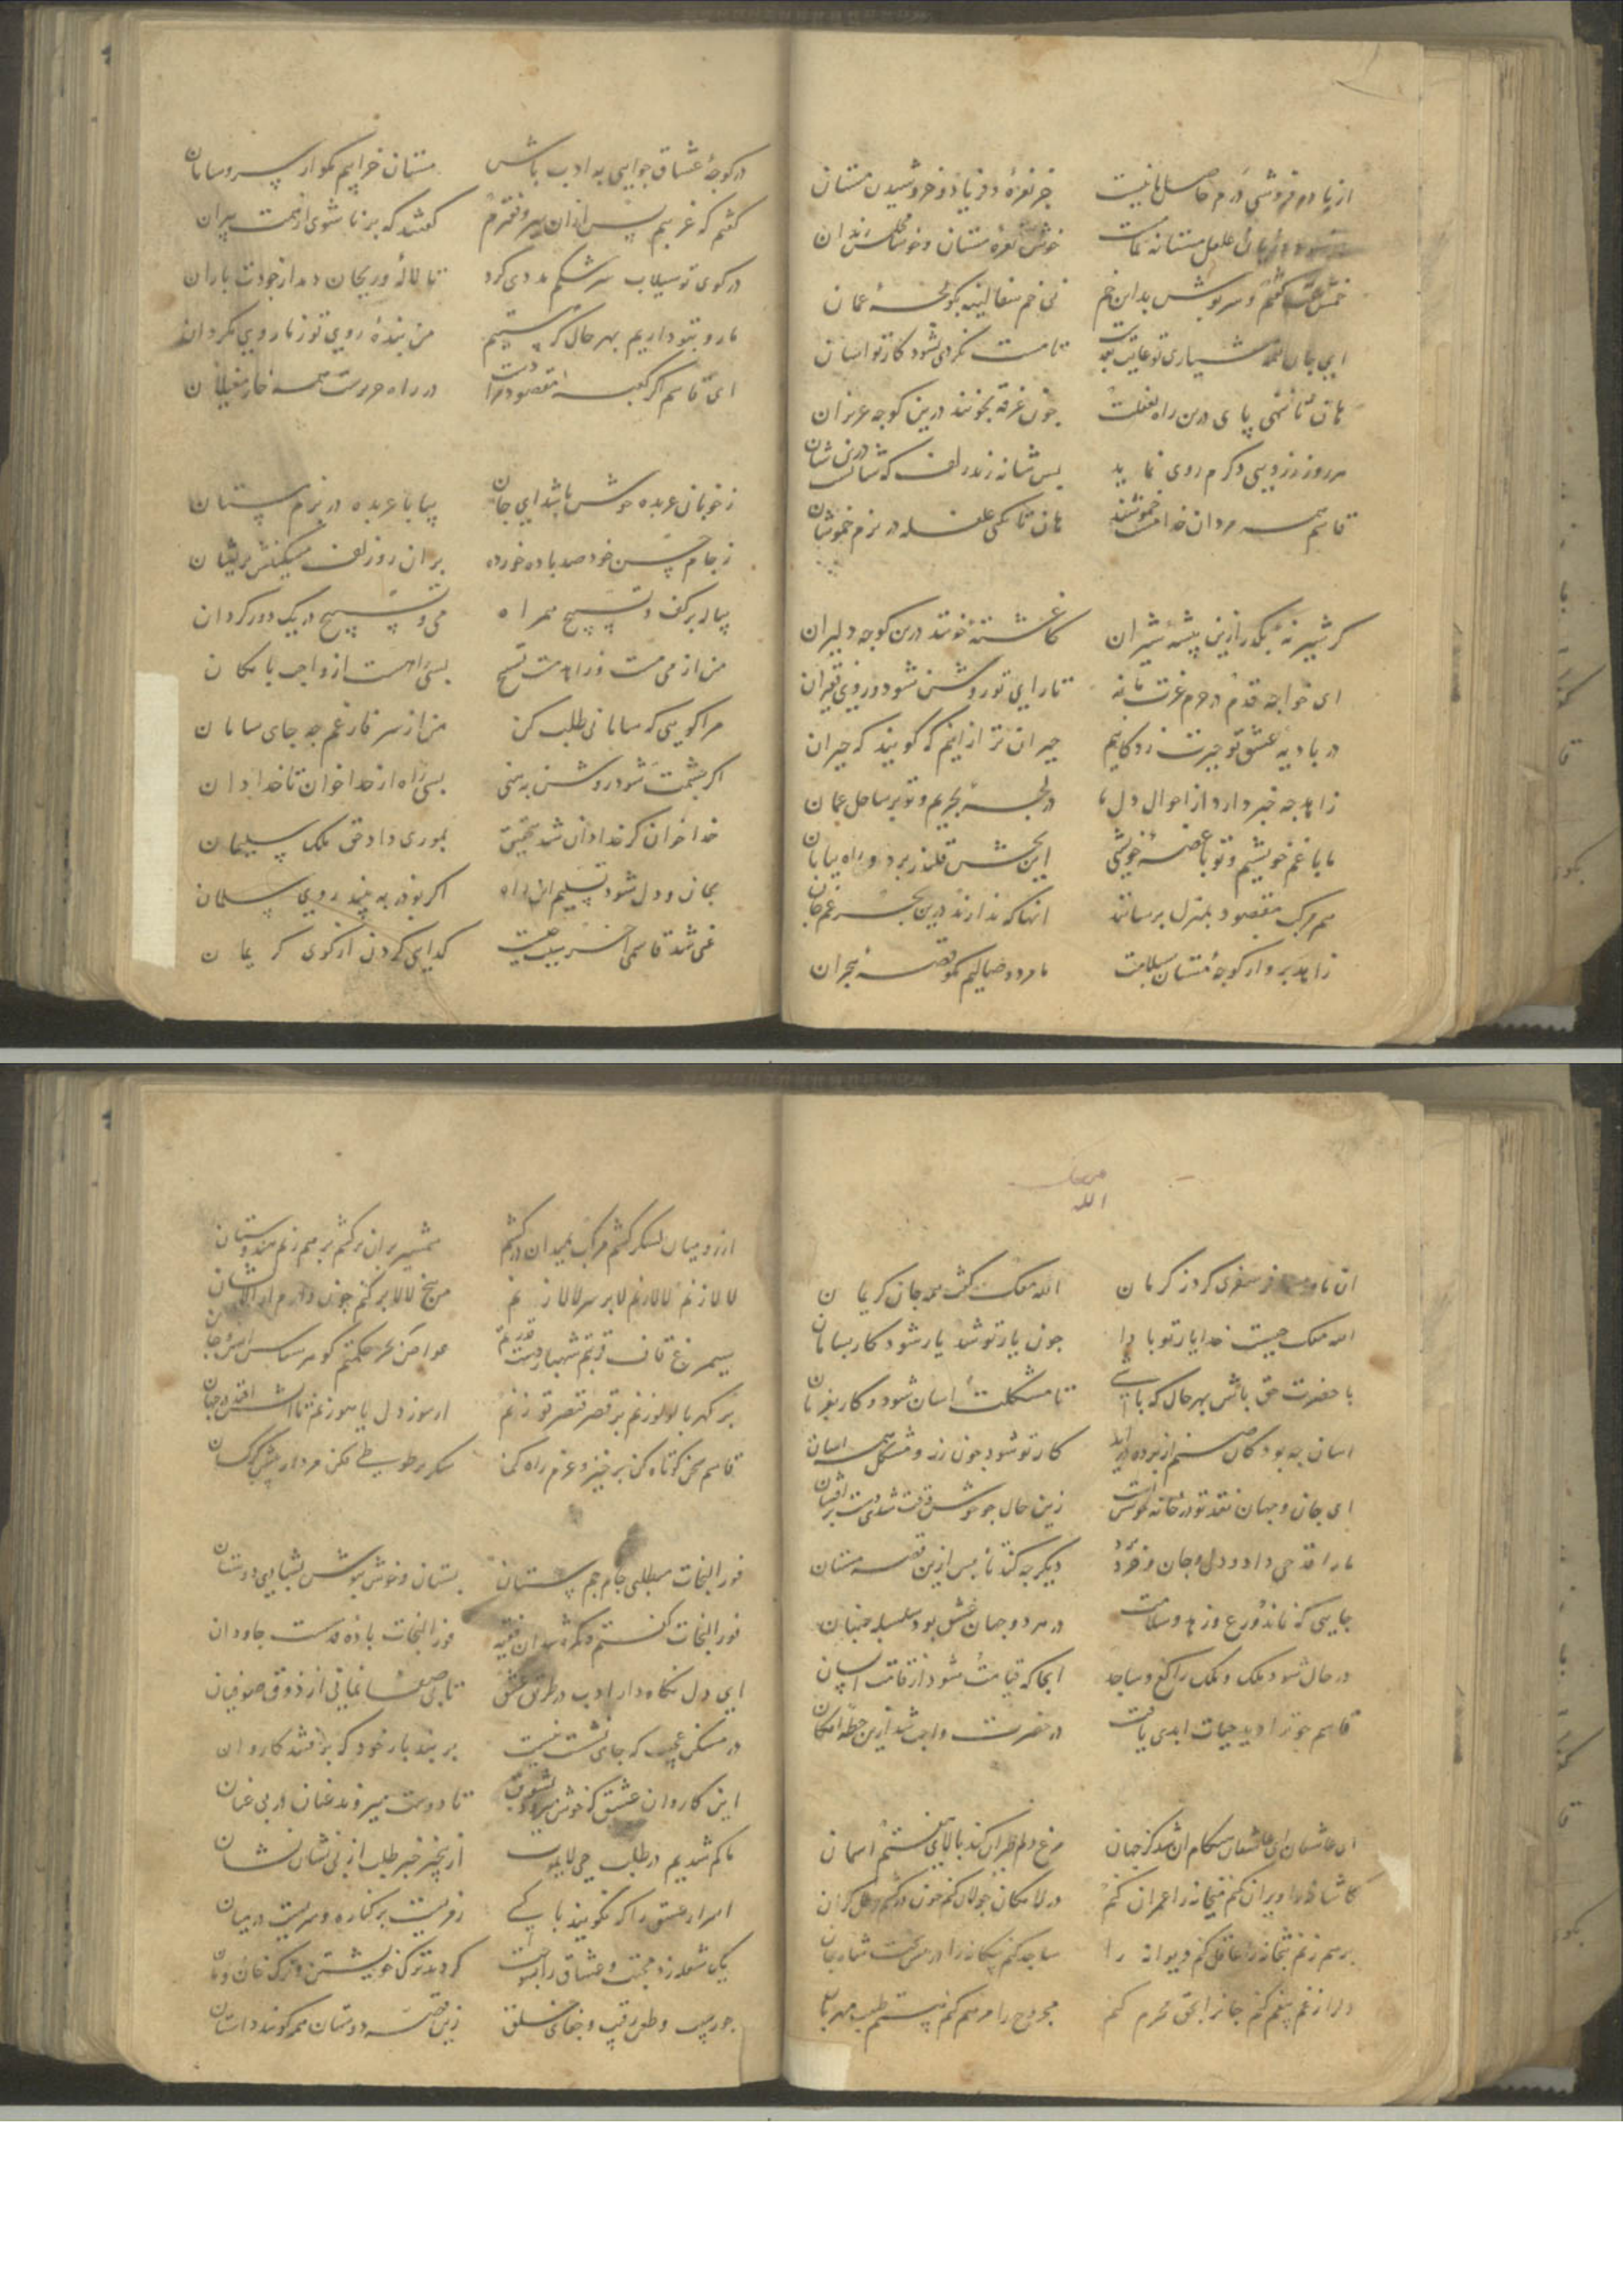 از یاد در فروشی درم حاصل ما نیست جز نعره و فریاد و خروشیدن مستان
غلغل مستانه خوش نعره مستان و خوشا مجلس رندان
و سرپوش بدین خم نی خم سفالینه بگو لجهٔ عمان
ای جان تو تا مست نگردی نشود کار تو آسان
هان تا ننهی پای درین راه بغفلت چون غرقه بخونند درین کوچه عزیزان
هر روز و کرم روی نماید بس شانه زند زلف
قاسم همه مردان خدا مست خموشند هان تا نکنی غلغله در بزم خموشان
گر شیر نهٔ بگذر ازین بیشهٔ شیران کاغشته بخونند درین کوچه دلیران
ای خواجه قدم در حرم عزت ما نه تا رای تو روشن شود و روی فقیران
در بادیهٔ عشق تو حیرت زدگانیم حیران تر از آنیم که گویند که حیران
زاهد چه خبر دارد از احوال دل ما در لجهٔ بحریم و تو بر ساحل عمان
ما با غم خویشیم و تو با غصهٔ خویشی این بخش قلندر برد و راه بیابان
هم مرکب مقصود بمنزل برسانند آنها که ندارند درین بحر غم جان
زاهد برو از کوچهٔ مستان بسلامت ما مرد وصالیم مگو قصه هجران
در کوچهٔ عشاق چو آیی به ادب باش مستان خرابیم مگو از سر و سامان
گفتم که غریبم پس ازان پیر و فقیرم گفتند که برنا شوی از همت پیران
در کوی تو سیلاب سرشکم مددی کرد تا لاله و ریحان دمد از جودت باران
ما رو بتو داریم بهر حال که هستیم من بندهٔ روی تو ز ما روی مگردان
ای قاسم اگر کعبه مقصود در راه حرم همه خار مغیلان
ز خوبان عربده خوش باشد ای جان بیا با عربده در بزم مستان
ز جام حسن خود صد باده خورده بر آن رو زلف مشکینش پریشان
پیاله بر کف و تسبیح همراه می و تسبیح در یک دور گردان
من از می مست و زاهد مست تسبیح بسی راهست از واجب بامکان
مرا گویی که سامانی طلب کن من از سر فارغم چه جای سامان
اگر چشمت شود روشن ببینی بسی راه از خدا خوان تا خدا دان
خدا خوان گر خدا دان شد بتحقیق بموری داد حق ملک سلیمان
بجان و دل شود تسلیم این راه اگر بوذر ببیند روی سلمان
غنی شد قاسمی آخر گدایی کردن از کوی کریمان
الله
آن ماه سفری کرد ز کرمان الله معک گفت همه جان کریمان
الله معک چیست خدا یار تو بادا چون یار تو شد یار شود کار بسامان
با حضرت حق باش بهر حال که باشی تا مشکلت آسان شود و کار
آسان چه بود کان صنم از پرده برآید کار تو شود چون زر و مشکل همه آسان
ای جان و جهان نقد تو در خانه زین حال چو خوش وقت شدی دست برافشان
ما را قدحی داد و دل و جان و خرد برد دیگر چه کند تا پس ازین قصه مستان
جایی که نماند ورع و زهد و سلامت در هر دو جهان عشق بود سلسله جنبان
در حال شود ملک و ملک راکع و ساجد آنجا که قیامت شود از قامت انسان
قاسم چو ترا دید حیات ابدی یافت در حضرت واجب شد ازین خطهٔ امکان
ای عاشقان ای عاشقان هنگام آن شد کز جهان مرغ دلم طیران کند بالای هفتم آسمان
کاشانه را ویران کنم میخانه را عمران کنم در لامکان جولان کنم چون درکشم رطل گران
برهم زنم بتخانه را عاقل کنم دیوانه را ساجد کنم بیگانه را در
دل را ز غم بیغم کنم جان را بحق محرم کنم مجروح را مرهم کنم هستم طبیب مهربان
از رو میان لشکر کشم مرکب بمیدان درکشم شمشیر بران برکشم بر هم زنم هندوستان
لالا زنم لالا زنم لا بر سر لالا زنم من بیخ لالا برکنم چون دارم از الا نشان
سیمرغ قاف قربتم شهباز دست قدرتم غواص بحر حکمتم گوهرشناس انس و جان
بر کهربا لولو زنم بر قصر قیصر قو زنم از سوز دل یاهو زنم تا آتش افتد در جهان
قاسم سخن کوتاه کن برخیز و عزم راه کن شکر بر طوطی فکن مردار پیش کرکسان
فوز النجات میطلبی جام جم بستان بستان و خوش بنوش بشادی دوستان
فوز النجات گفتم و فوز النجات بادهٔ قدست جاودان
ای دل نگاه دار ادب در طریق عشق تا بی صفا نمانی از ذوق صوفیان
در مسکن عجب که جای نشست نیست بر بند بار خود که برفتند کاروان
این کاروان عشق که خوش میرود بشوق تا دوست میروند عنان در پی عنان
ما گم شدیم در طلب حی لایموت از بیخبر خبر طلب از بی نشان نشان
اسرار عشق را که نگویند با کسی رفریست بر کناره و سریست در میان
یک شعله زد محبت و عشاق را بسوخت کردند ترک خویشتن و ترک خان و مان
جور حبیب و طعن رقیب و جفای خلق زین قصه دوستان همه گویند داستان